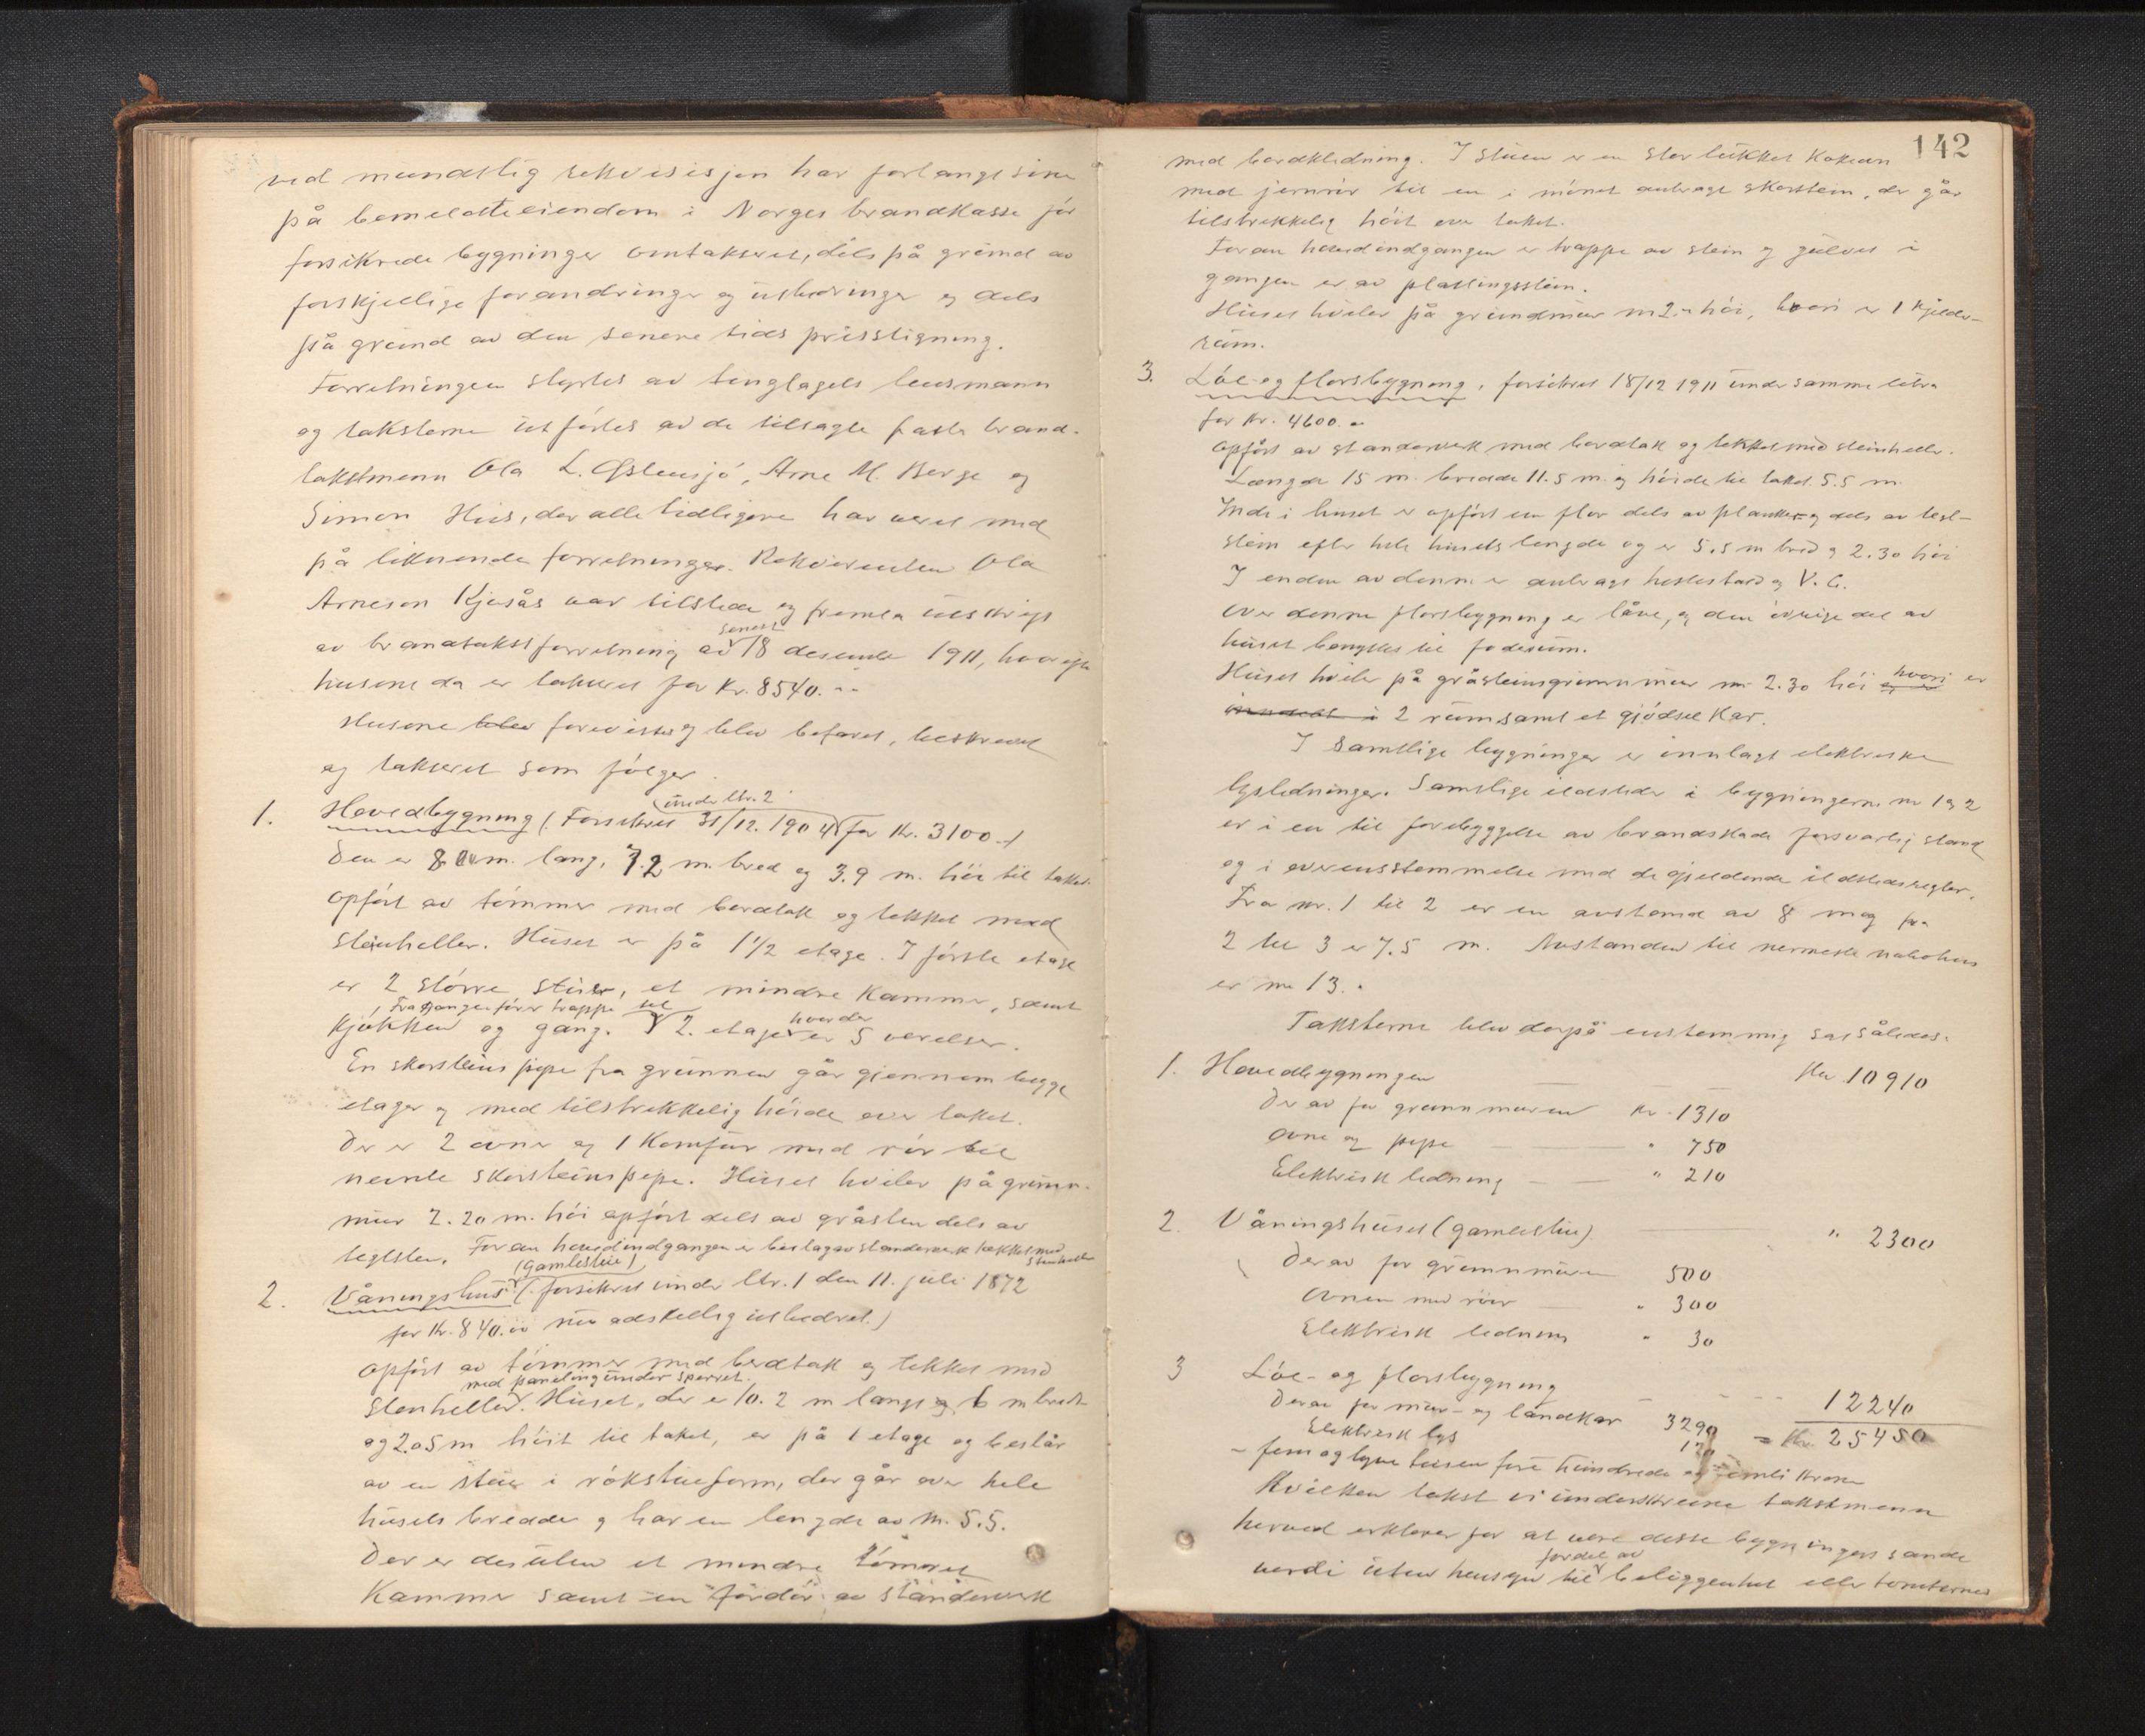 ved mundtlig rekvisisjon har forlangt sine
på bemeldte eiendom i Norges brandkasse for
forsikrede bygninger omtakseret, dels på grund av
forskjellige forandringer og utbedringer og dels
på grund av den senere tids prisstigning.
Forretningen styrtes av tinglagets lensmann
og taksterne utførtes av de tilsagte faste brand-
takstmenn Ola L. Østensjø, Arne M. Berge og
Simon Hus, der alle tidligere har veret med
på liknende forretninger. Rekvirenten Ola
Arneson Kjosås var tilstede og fremla utskrift
av brandtakstforretning av senest 18 desember 1911, hvorefter
husene da er takseret for Kr. 8540.-
Husene blev forevist og blev befaret, beskrevet
og takseret som følger.
1. Hovedbygning (Forsikret 31/12. 1904 under ltr. 2 for Kr. 3100.-)
Den er 8 m. lang, 7.2 m. bred og 3.9 m. høi til taket.
Opført av tømmer med bordtak og tekket med
steinheller. Huset er på 1 1/2 etage. I første etage
er 2 større stuer, et mindre kammer, samt
kjøkken og gang. Fra gangen fører trappe til 2. etage hvor der er 5 verelser.
En skorsteinspipe fra grunnen går gjennem begge
etager og med tilstrekkelig høide over taket.
Der er 2 ovner og 1 komfur med rør til
nevnte skorsteinspipe. Huset hviler på grunn-
mur 2.20 m. høi opført dels av gråsten dels av
teglsten. Foran hovedindgangen er bislag av standerverk tekket med stenheller
2. Våningshus (gamlestue) (forsikret under ltr. 1 den 11. juli 1872
for Kr. 840.00 nu adskillig utbedret.)
Opført av tømmer med bordtak og tekket med
stenheller med paneling under sperret. Huset, der er 10.2 m langt og 6 m bredt
og 2.05 m høit til taket, er på 1 etage og består
av en stue i røkstueform, der går over hele
husets bredde og har en lengde av m. 5.5.
Der er desuten et mindre tømret
kammer samt en fordør av standerverk
142
med bordkledning. I stuen er en stor lukket kokeovn
med jernrør til en i mønet anbragt skorstein, der går
tilstrekkelig høit over taket.
Foran hovedindgangen er trappe av stein og gulvet i
gangen er av plattingsstein.
Huset hviler på grundmur m 2.- høi, hvori er 1 kjelder-
rum.
3. Løe- og florsbygning, forsikret 18/12 1911 under samme litra
for Kr. 4600.-
Opført av standerverk med bordtak og tekket med steinheller.
Længde 15 m. bredde 11.5 m. og høide til taket 5.5 m.
Inde i huset er opført en flor dels av planker og dels av tegl-
stein efter hele husets lengde og er 5.5 m bred og 2.30 høi
I enden av denne er anbragt hestestald og V.C.
Over denne florsbygning er låve, og den øvrige del av
huset benyttes til foderum.
Huset hviler på gråsteinsgrunnmur m 2.30 høi hvori er
2 rum samt et gjødselkar.
I samtlige bygninger er innlagt elektriske
lysledninger. Samtlige ildsteder i bygningerne nr 1 og 2
er i en til forebyggelse av brandskade forsvarlig stand
og i overensstemmelse med de gjeldende ildstedsregler.
Fra nr. 1 til 2 er en avstand av 8 m og fra
2 til 3 er 7.5 m. Avstanden til nermeste nabohus
er m 13.-
Taksterne blev derpå enstemmig sat således:
1. Hovedbygningen Kr 10910
Derav for grunnmuren Kr. 1310
Ovne og pipe " 750
Elektrisk ledning " 210
2. Våningshuset (gamlestue) " 2300
Derav for grunnmuren 500
Ovnen med rør " 300
Elektrisk ledning " 30
3 Løe- og florsbygning 12240
Derav for mur- og landkar 3290
Elektrisk lys 120 = Kr. 25450
- fem og tyve tusen fire hundrede og femti kroner
Hvilken takst vi underskrevne takstmenn
herved erklærer for at være disse bygningers sande
verdi uten hensyn til fordel av beliggenhet eller tomternes